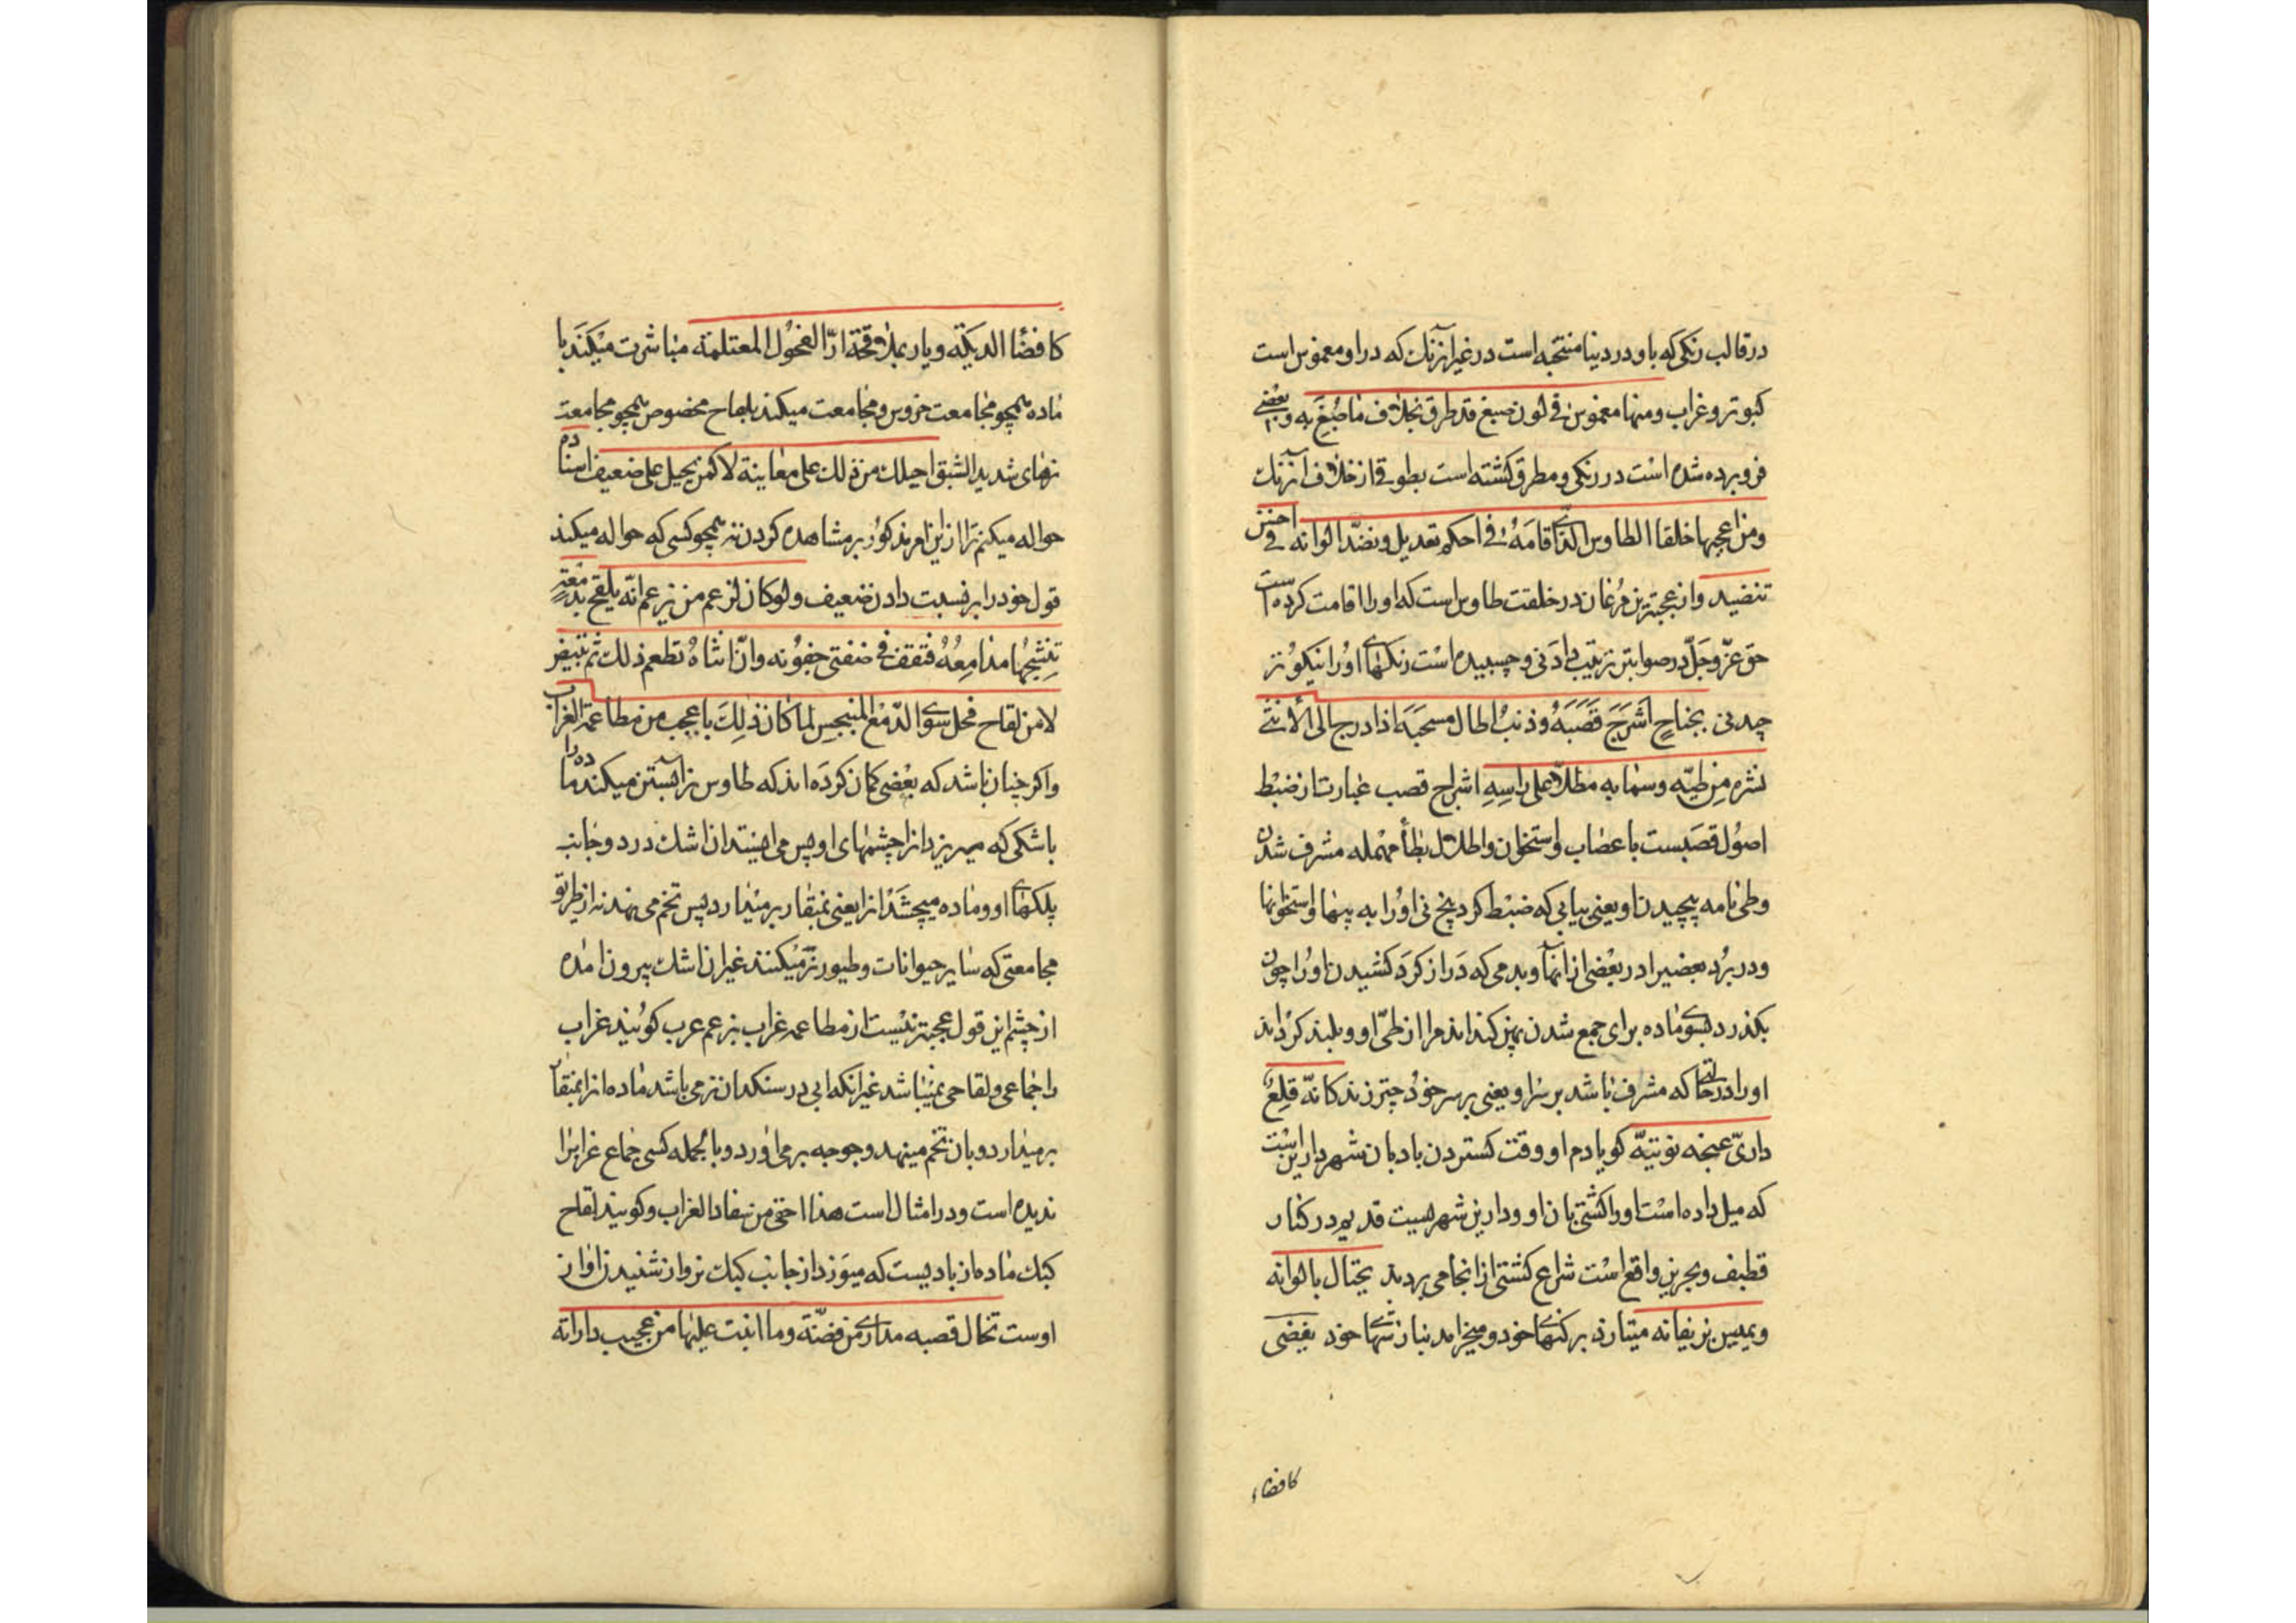 درقالب رنکی که باو دردنیا منتجه است درغیر از آنرنك که دراو مغموس است
کبوتر و غراب ومنها مغموس فی لون صبغ قد طرق بخلاف ماصُبغَ به وبعضی
فروبرده شده است در رنکی و مطرق کشته است بطوقی از خلاف آنرنك
ومن اعجبها خلقا الطاوس الّذی اقامَهُ فی احکم تعدیل ونضّد الوانه فی احسن
تنضید واز عجبترین مرُغان در خلقت طاوس است که اورا اقامت کرده است
حق عزّ وجَلّ در صوابتر ترتیب دادنی و چسبیده است رنکهای اوُرا نیکوُتر
چیدنی بجناحٍ اَشرَجَ قَصَبَهُ وذنبٌ اطال مسحبَهَ اذا درج الی الأنثی
نشره مِن طیّه وسمابه مطلاًّ علی راسِهِ اشراج قصب عبارت از ضبْط
اصوُل قصَبست باعصاب واستخوان واطلال بطأ مهْمله مشرف شدن
وطی نامه پیچیدن او یعنی ببابی که ضبْط کرد بیخ نی اوُرا به پیها واستخوانها
ودر برُد بعضیرا در بعْضی از انها وبدمی که دَراز کرَد کشیدن اورُا چون
بکذرد بسوی ماده برای جمع شدن پهن کند اند مرا از طیّ او وبلند کرداند
اورا درحالتی که مشرف باشد بر سراو یعنی برسر خودُ چتر زند کانّه قلِعُ
داریّ عنجه نوتیّه کویا دم او وقت کستردن بادبان شهر دارین است
که میل داده است اورا کشتی بان او ودارین شهریست قدیم در کنار
قطیف وبحرین واقع است شراع کشتی از انجا می بردند یختال بالوانه
ویمیس بزیفانه مینازد برکنهای خود ومیخرامد بنازشهای خود یفضی
کافضاء
کافضٓا الدیکَة ویار بملاقحَة ارّ الفحوُل المعتلمة مباشرت میکنَد با
ماده همچو مجامعت خروس و مجامعت میکند بلقاح مخصوص همچو مجامعت
نرهای شدید الشبق احیلك من ذلك علی معاینة لاکمن یحیل علی ضعیف اسناده
حواله میکنم ترا از این امر مذکوُر بر مشاهده کردن نه همچو کسی که حواله میکند
قول خودرا بر نسبت دادن ضعیف ولوکان کزعم من یزعم انّه یلقح بدمْعةٍ
تنشجهُا مدامِعُهُ فتقف فی ضفتی جفوُنه وانّ انثاهُ تطعم ذلك ثم تبیض
لامن لقاح فحل سوی الدّمْع المنبجس لما کان ذلِكَ باعجب من مطاعمة الغراب
واکر چنان باشد که بعْضی کمان کردَه اند که طاوس نر ابستن میکند ماده را
باشکی که میریزد از چشمهای او پس می ایستد ان اشك در دو جانب
پلکهای او وماده میچشَد انرا یعنی بمنقار بر میدارد پس تخم می نهد نه از طریق
مجامعتی که سایر حیوانات وطیور نر میکنند غیر ان اشك بیرون امده
از چشم این قول عجبتر نیست از مطاعمه غراب بزعم عرب کویند غراب
را جماعی ولقاحی نمیباشد غیر انکه ابی در سنکدان نر می باشد ماده انرا بمنقار
برمیدارد وبان تخم مینهد وجوجه بر می اورد وبالجمله کسی جماع غرابرا
ندیده است ودر امثال است هذا اخفی من سفاد الغراب وکویند لقاح
کبك ماده از بادیست که میوَزد از جانب کبك نر واز شنیدن اواز
اوست تخال قصبه مداری من فضّة وما انبت علیها من عجیب داراته